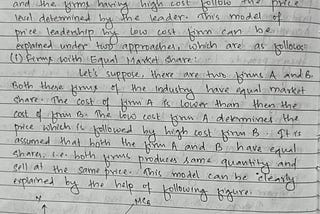 and the firms having high cost follow the price
level determined by the leader. This model of
price leadership by low cost firm can be
explained under two approaches, which are as follows:
(1) Firms with Equal Market Share:
Let's suppose, there are two firms A and B.
Both these firms of the industry have equal market
share. The cost of firm A is lower than then the
cost of firm B. The low cost firm A determines the
price which is followed by high cost firm B. It is
assumed that both the firm A and B have equal
shares, i.e. both firms produces same quantity and
sell at the same price. This model can be clearly
explained by the help of following figure.
Y MCB